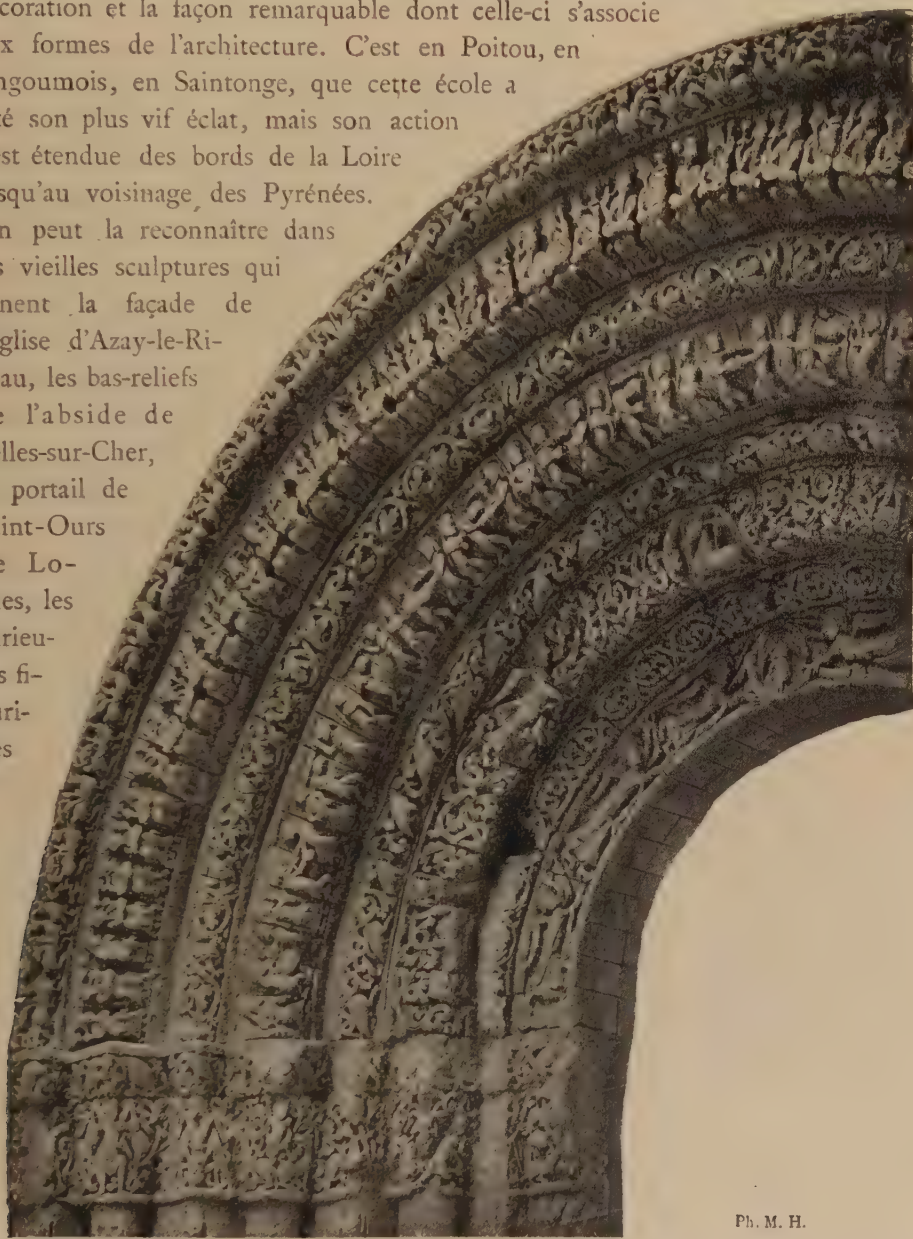 coration et la façon remarquable dont celle-ci s'associe
x formes de l'architecture. C'est en Poitou, en
ngoumois, en Saintonge, que cette école a
té son plus vif éclat, mais son action
est étendue des bords de la Loire
squ'au voisinage des Pyrénées.
n peut la reconnaître dans
s vieilles sculptures qui
nent la façade de
glise d'Azay-le-Ri-
au, les bas-reliefs
e l'abside de
elles-sur-Cher,
portail de
int-Ours
e Lo-
es, les
rieu-
s fi-
uri-
es
Ph. M. H.